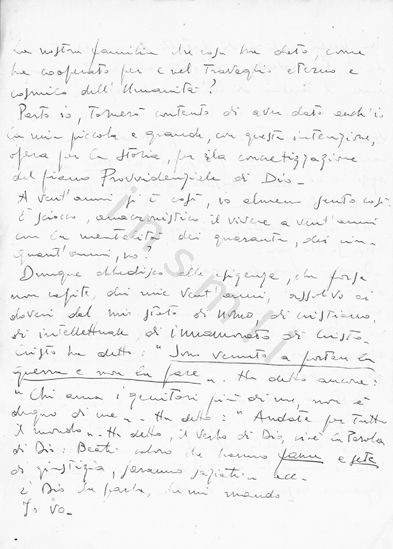 La nostra famiglia che cosa ha dato, come
ha cooperato per e nel travaglio eterno e
cosmico dell'Umanità?
Parto io, tornerò contento di aver dato anch'io
la mia piccola e grande, con questa intenzione,
opera per la storia, per la concretizzazione
del piano Provvidenziale di Dio.
A vent'anni si è così, io almeno sento così.
È sciocco, anacronistico il vivere a vent'anni
con la mentalità dei quaranta, dei cin-
quant'anni, no?
Dunque obbedisco alle esigenze, che forse
non capite, dei miei vent'anni, assolvo ai
doveri del mio stato di uomo, di cristiano,
di intellettuale, di innamorato di Cristo.
Cristo ha detto: "Sono venuto a portare la
guerra e non la pace". Ha detto ancora:
"Chi ama i genitori più di me, non è
degno di me". Ha detto: "Andate per tutto
il mondo". Ha detto, il Verbo di Dio, cioè la Parola
di Dio: Beati coloro che hanno fame e sete
di giustizia, saranno saziati
È Dio che parla, che mi manda.
Io vo.
insmli